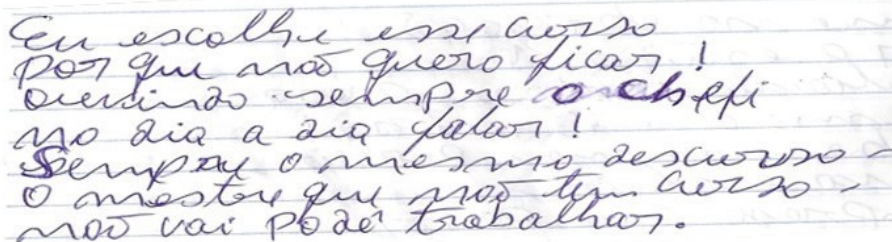 Eu escolhi esse curso
por que não quero ficar!
ouvindo sempre o chefi
no dia a dia falar!
Sempre o mesmo descurso -
o mestre que não tem curso -
não vai podê trabalhar.